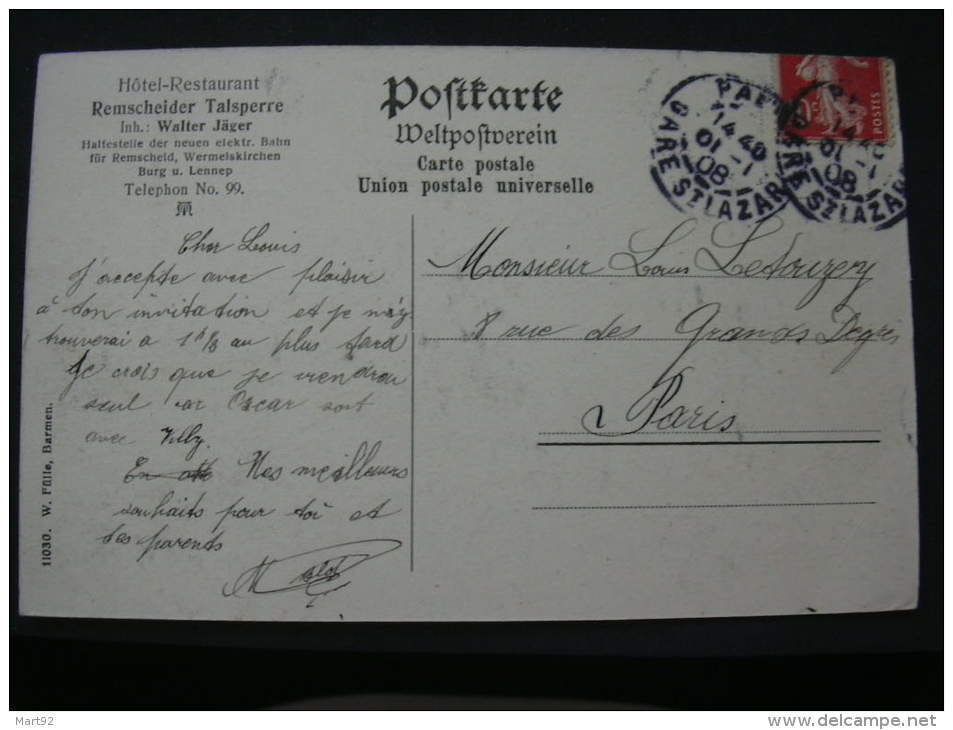 Hôtel-Restaurant
Remscheider Talsperre
Inh.: Walter Jäger
Haltestelle der neuen elektr. Bahn
für Remscheid, Wermelskirchen
Burg u. Lennep
Telephon No. 99.
Postkarte
Weltpostverein
Carte postale
Union postale universelle
14 40
01 - 1
08
GARE St LAZARE
14
01 - 1
08
GARE St LAZAR
POSTES
Cher Louis
J'accepte avec plaisir
à ton invitation et je m'y
trouverai a 1h ½ au plus tard
Je crois que je viendrai
seul car Oscar sort
avec Villy.
Mes meilleurs
souhaits pour toi et
tes parents
Monsieur Louis Letouzey
8 rue des Grands Degrés
à Paris
11030. W. Fülle, Barmen.
Mart92
www.delcampe.net